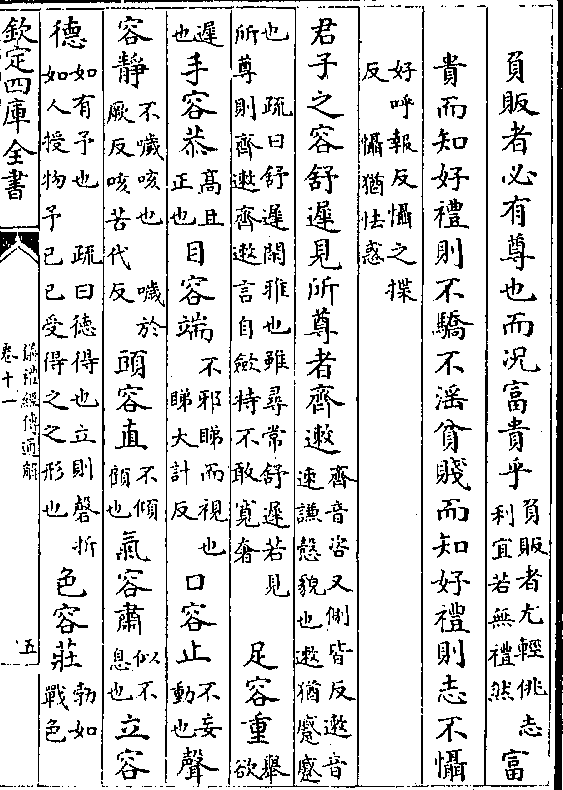 負販者必有尊也而况富貴乎負販者尤輕佻志利宜若無禮然富
貴而知好禮則不驕不滛貧賤而知好禮則志不懾
好呼報反懾之揲反懾猶怯惑
君子之容舒遲見所尊者齊遬齊音咨又側皆反遬音速謙慤貌也遬猶蹙蹙
也疏曰舒遲閑雅也雖尋常舒遲若見所尊則齊遬齊遬言自斂持不敢寛奢足容重舉欲
遲也手容恭高且正也目容端不邪睇而視也睇大計反口容止不妄動也聲
容靜不噦咳也噦於厥反咳苦代反頭容直不傾顧也氣容肅似不息也立容
德如有予也疏曰德得也立則磬折如人授物予己己受得之之形也色容莊勃如戰色
欽定四庫全書
儀禮經傳通解
卷十一
五